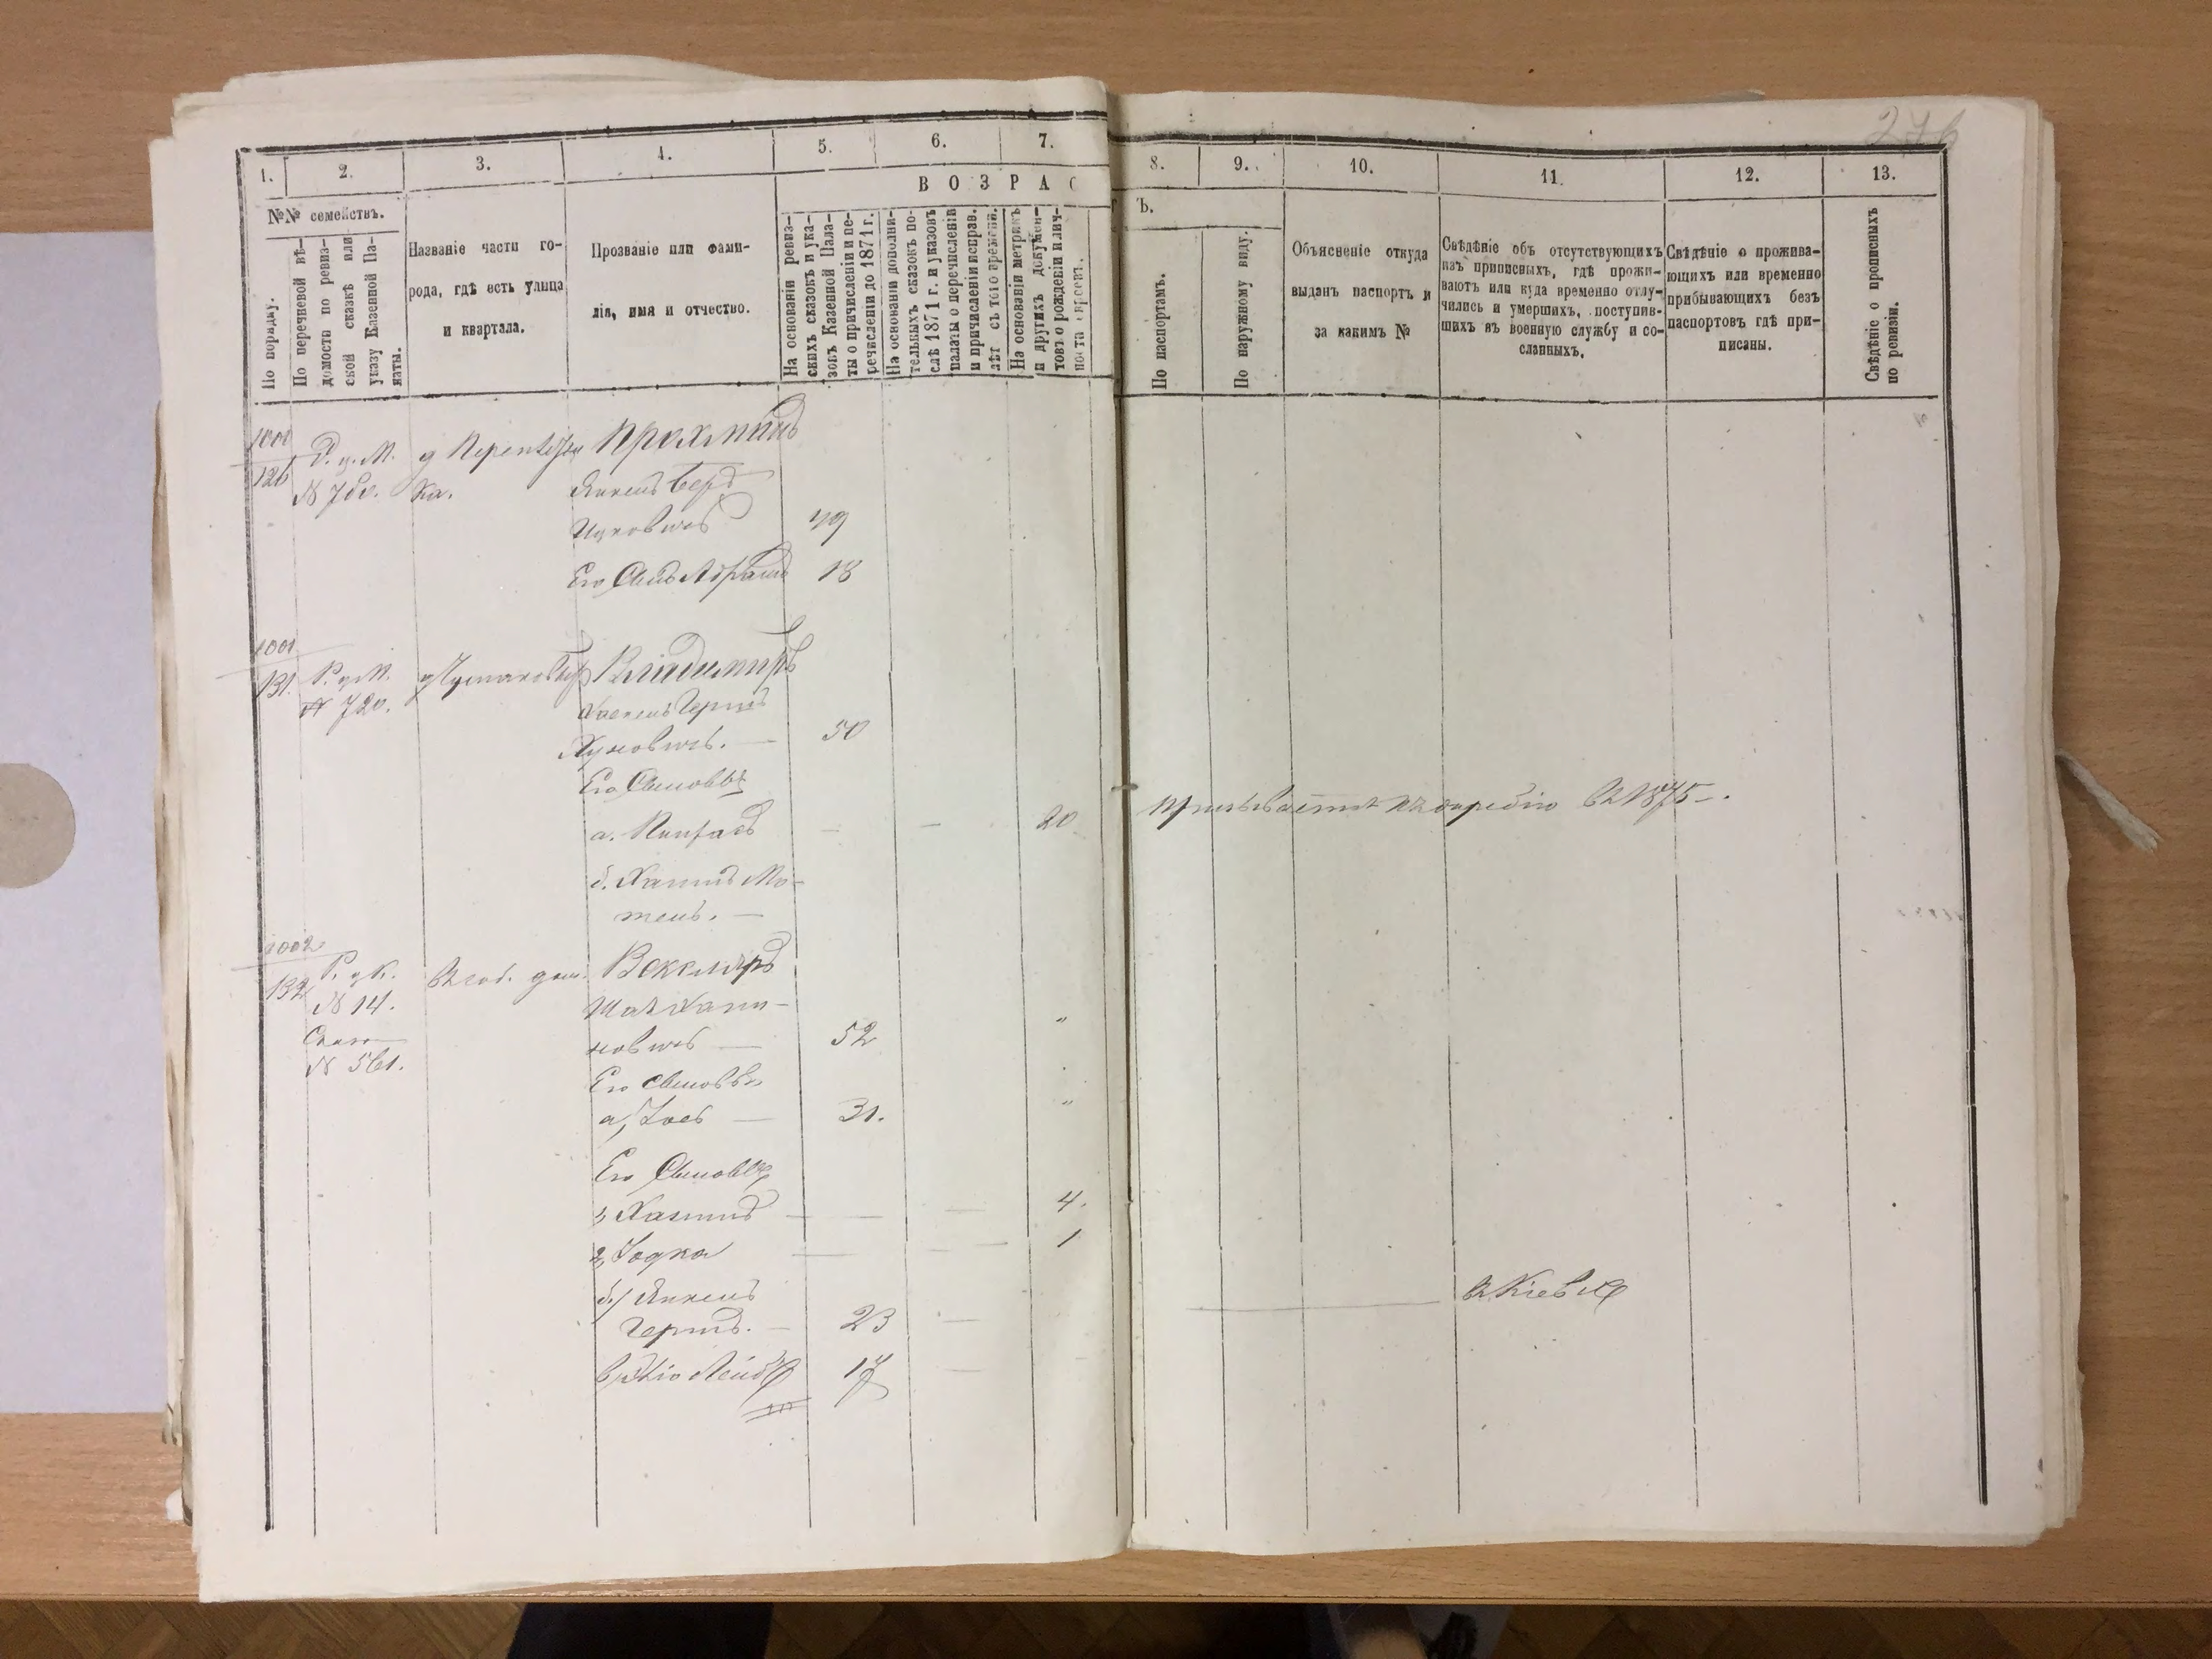 276
1.
2.
3.
4.
5.
6.
7.
8.
9.
10.
11.
12.
13.
ВОЗРАС
Ъ.
№№ семействъ.
По порядку.
По перечневой вѣ-
домости по ревиз-
ской сказкѣ или
указу Казенной Па-
латы.
Названіе части го-
рода, гдѣ есть улица
и квартала.
Прозваніе или фами-
лія, имя и отчество.
На основаніи ревиз-
скихъ сказокъ и ука-
зовъ Казенной Пала-
ты о причисленіи и пе-
речисленіи до 1871 г.
На основаніи дополни-
тельныхъ сказокъ по-
слѣ 1871 г. и указовъ
палаты о перечисленіи
и причисленіи исправ.
лѣт съ того времени.
На основаніи метрикъ
и другихъ докумен-
товъ о рожденіи и лич-
носта евреевъ.
По паспортамъ.
По наружному виду.
Объясненіе откуда
выданъ паспортъ и
за какимъ №
Свѣдѣніе объ отсутствующихъ
изъ приписныхъ, гдѣ прожи-
ваютъ или куда временно отлу-
чились и умершихъ, поступив-
шихъ въ военную службу и со-
сланныхъ.
Свѣдѣніе о прожива-
ющихъ или временно
прибывающихъ безъ
паспортовъ гдѣ при-
писаны.
Свѣдѣніе о прописныхъ
по ревизіи.
1000
126
№ 7
ка.
Янкель Беръ
Ицковичъ 49
Его Сынъ Абрамъ 18
1001
131.
№ 720.
Владимиръ
Хаскель Гершъ
Хуновичъ. — 50
Его Сыновья
а. Пинхасъ — — 20
призывается къ жеребію въ 1875 —.
б. Хаимъ Мо-
тель. —
1002
132
№ 14.
№ 561.
въ соб. дом.
Векслеръ
Хаи-
мовичъ — 52 "
Его сыновья
а, Іось — 31. "
Его Сыновья
1, Хаимъ — — — 4.
2, Іодка — — — 1
б,/ Янкель
Гершъ. — 23 —
въ Кіевѣ
в, Лейба 17 —